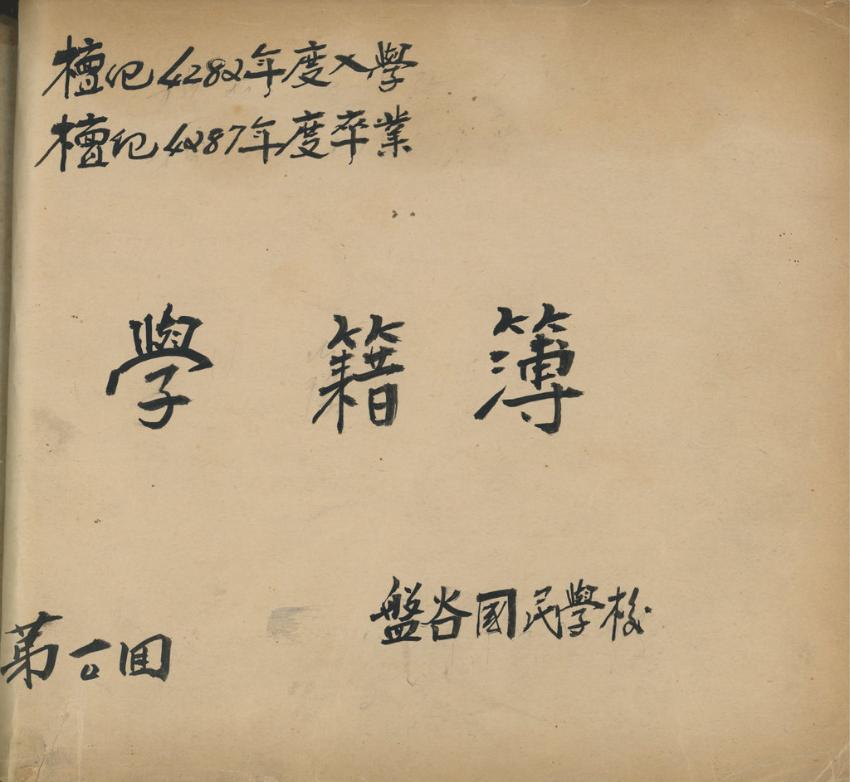 檀紀4282年度入學
檀紀4287年度卒業
學籍簿
盤谷国民學校
第一〇回